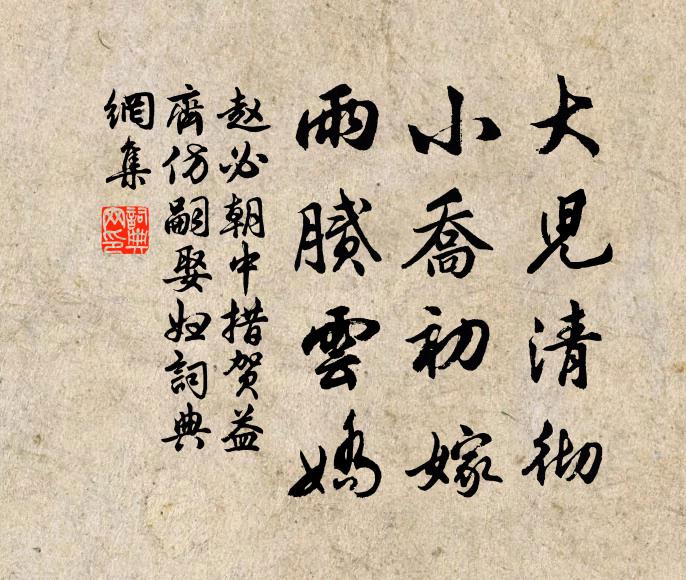 大児清彻
小喬初嫁
雨膩雲嬌
赵必朝中措贺益
齋仿嗣娶妞詞典
網集
詞典網印